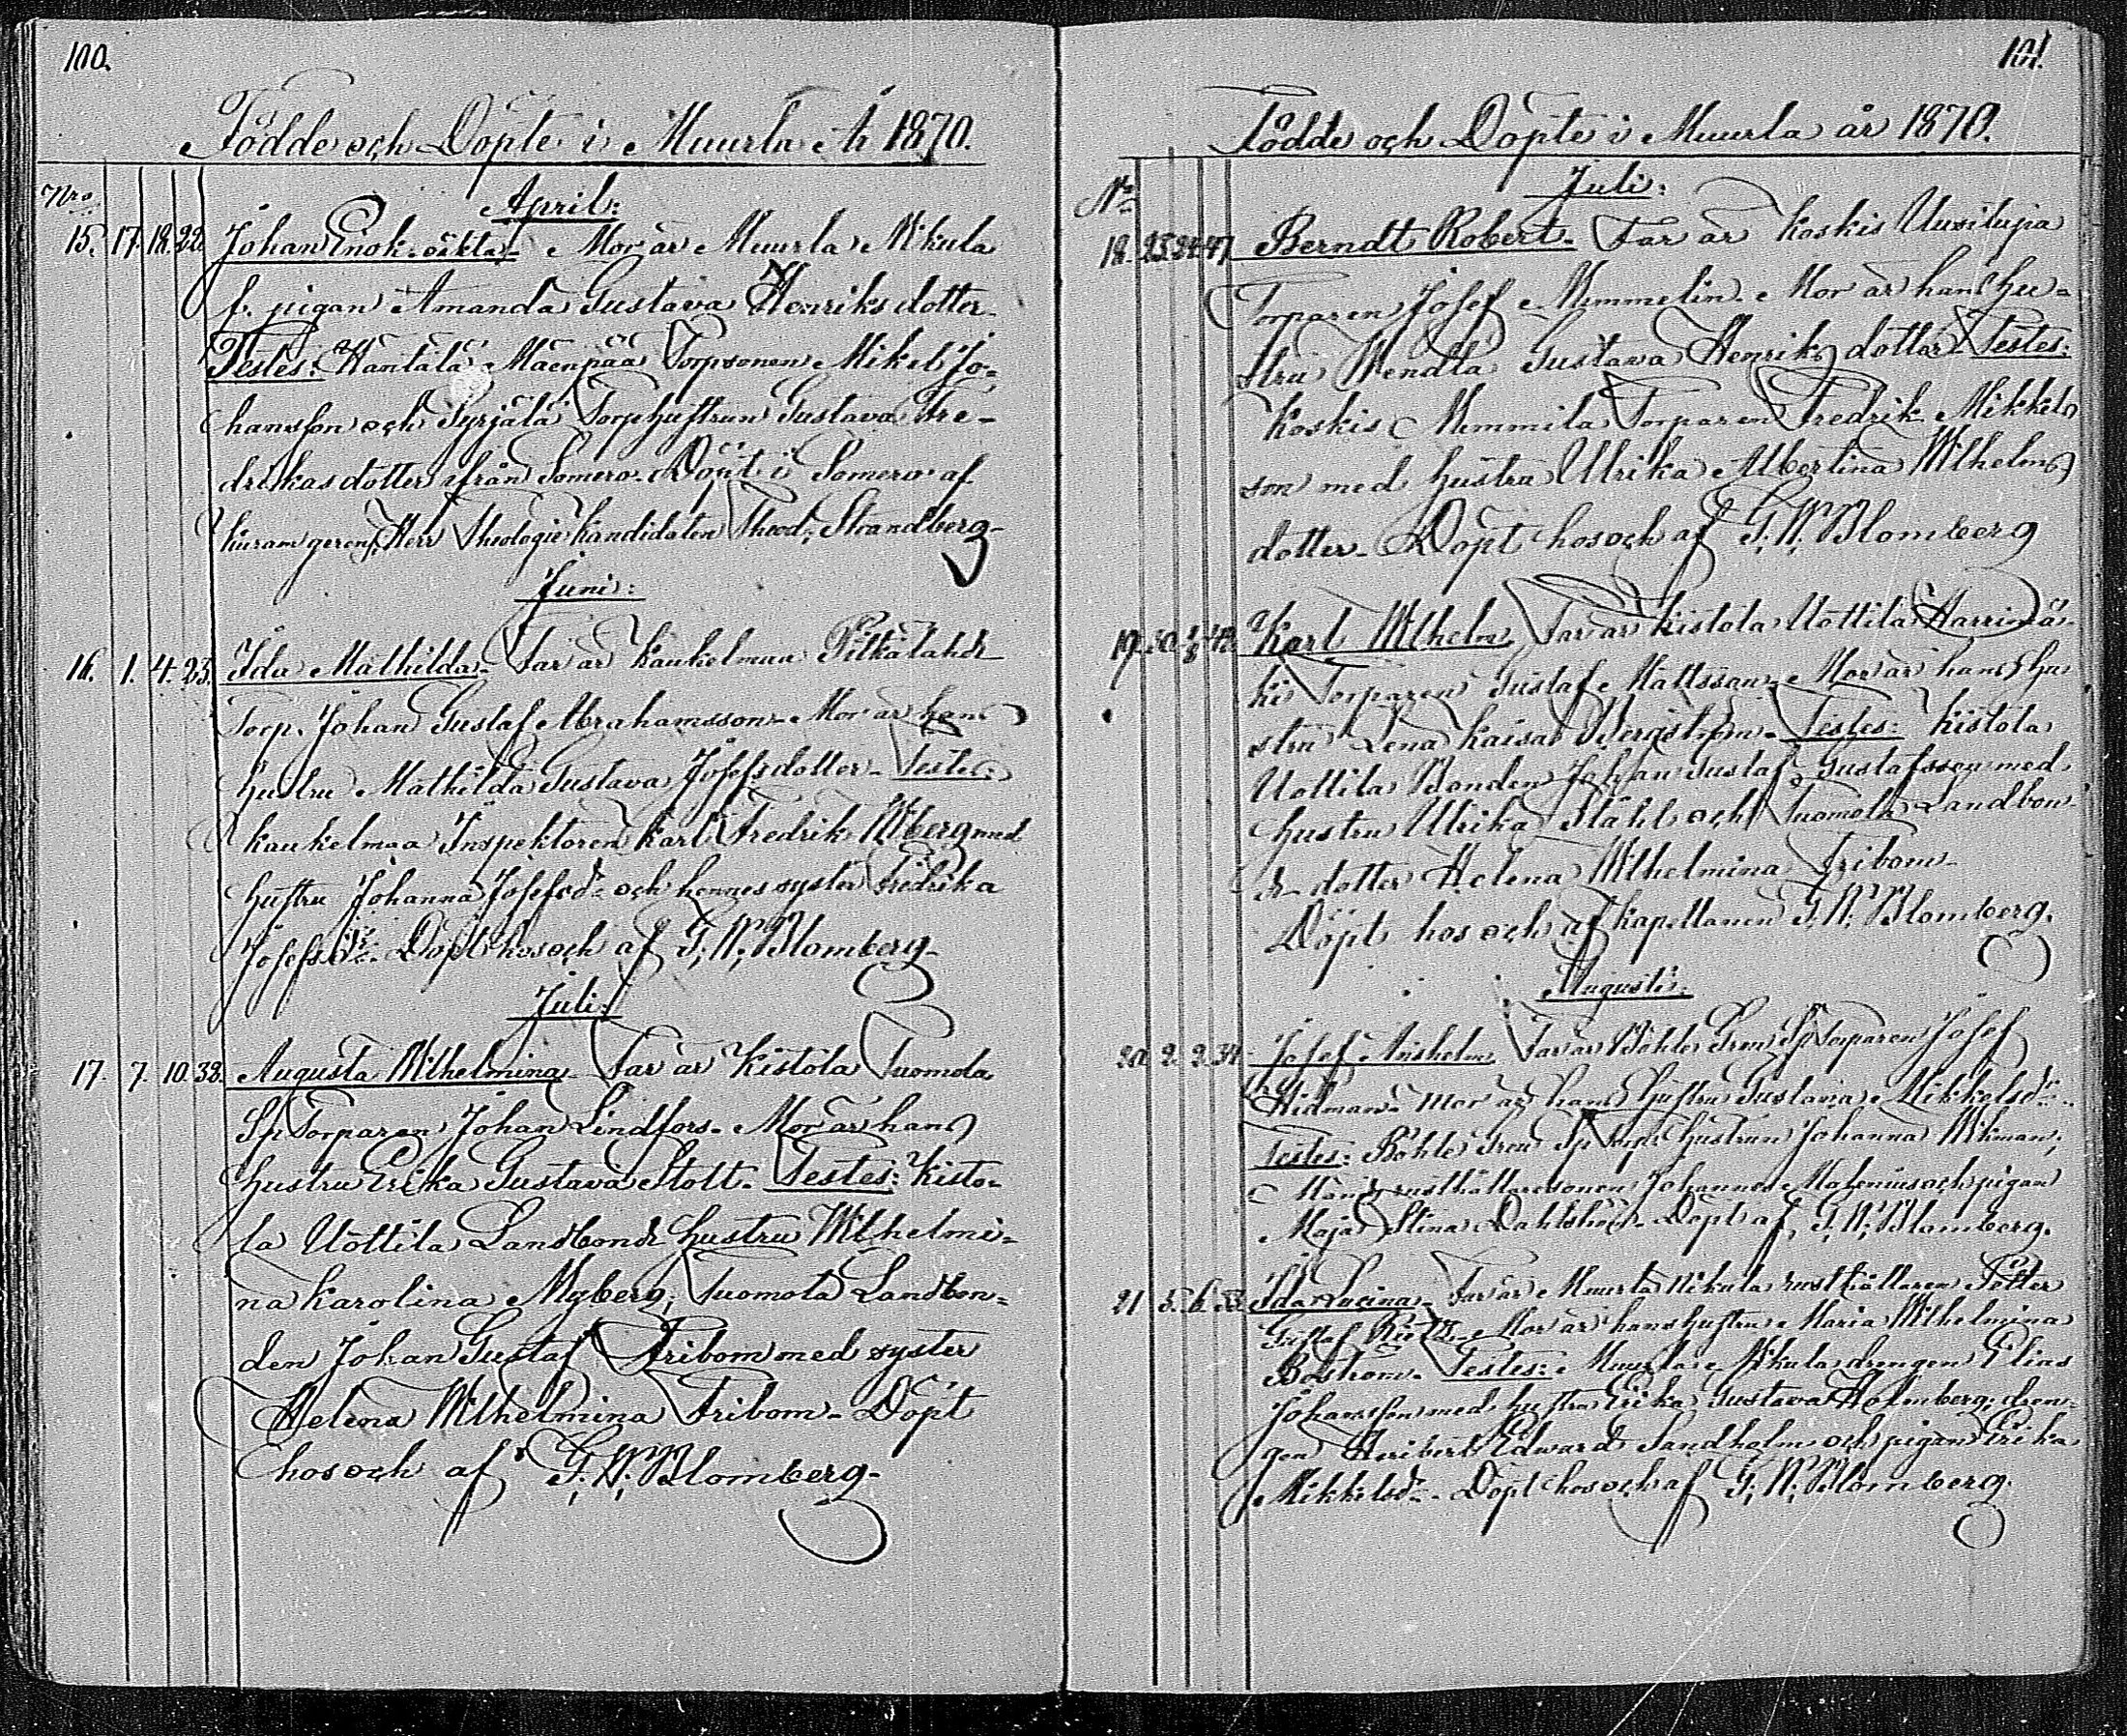 100.
Födde och Döpte i Muurla År 1870.
Nro
April:
15. 17. 18. 22. Johan Enok. oäkta. Mor är Muurla Nikula
f. pigan Amanda Gustava Henriksdotter.
Testes: Häntälä Mäenpää Torpsonen Mikel Jo-
hansson och Syrjälä Torphustrun Gustava Fre-
driksdotter från Somero. Döpt i Somero af
Herr Theologie Kandidaten Theod. Strandberg.
Juni:
16. 1. 4. 25. Ida Mathilda. Far är Kaukelmaa Pitkälahti
Torp. Johan Gustaf Abrahamsson. Mor är hans
hustru Mathilda Gustava Josefsdotter. Testes:
Kaukelmaa Inspektoren Karl Fredrik Wiberg med
hustru Johanna Josefsdr och hennes syster Fredrika
Josefsdr. Döpt hos och af G. W. Blomberg.
Juli:
17. 7. 10. 38. Augusta Wilhelmina. Far är Kistola Tuomola
Sp Torparen Johan Lindfors. Mor är hans
hustru Erika Gustava Stolt. Testes: Kisto-
la Uottila Landbonde hustru Wilhelmi-
na Karolina Nyberg; Tuomola Landbon-
den Johan Gustaf Fribom med syster
Helena Wilhelmina Fribom. Döpt
hos och af G. W. Blomberg.
101.
Födde och Döpte i Muurla år 1870.
No
Juli:
18. 23. 24. 47. Berndt Robert. Far är Koskis Uusilupia
Torparen Josef Memmelin. Mor är hans hu-
stru Wendla Gustava Henriksdotter. Testes:
Koskis Memmila Torparen Fredrik Mikkels
son med hustru Ulrika Albertina Wilhelms
dotter. Döpt hos och af G. W. Blomberg
19. Karl Wilhelm. Far är Kistola Uottila Harrimä-
ki Torparen Gustaf Mattsson. Mor är hans hu
stru Lena Kaisa Bergström. Testes: Kistola
Uottila Bonden Johan Gustaf Gustafsson med
hustru Ulrika Ståhl och Tuomola Landbon-
de dotter Helena Wilhelmina Fribom.
Döpt hos och af Kapellanen G. W. Blomberg.
Augusti:
20. 2. 2. 34. Josef Anshelm. Far är Böhle Gren Sp Torparen Josef
Widman. Mor är hans hustru Gustava Mikkelsdr.
Testes: Böhle Gren Sp Torp. hustrun Johanna Wikman,
rusthållaresonen Johannes Molenius och pigan
Maja Stina Döpt af G. W. Blomberg.
21. 5. 6. Ida Lucina. Far är Muurla Nikula rusthållaren Petter
Gustaf Mor är hans hustru Maria Wilhelmina
Boström. Testes: Muurla Nikula drengen Elias
Johansson med hustru Erika Gustava Holmberg; dren-
gen Heribert Edward Sandholm och pigan Erika
Mikkelsdr. Döpt hos och af G. W. Blomberg.